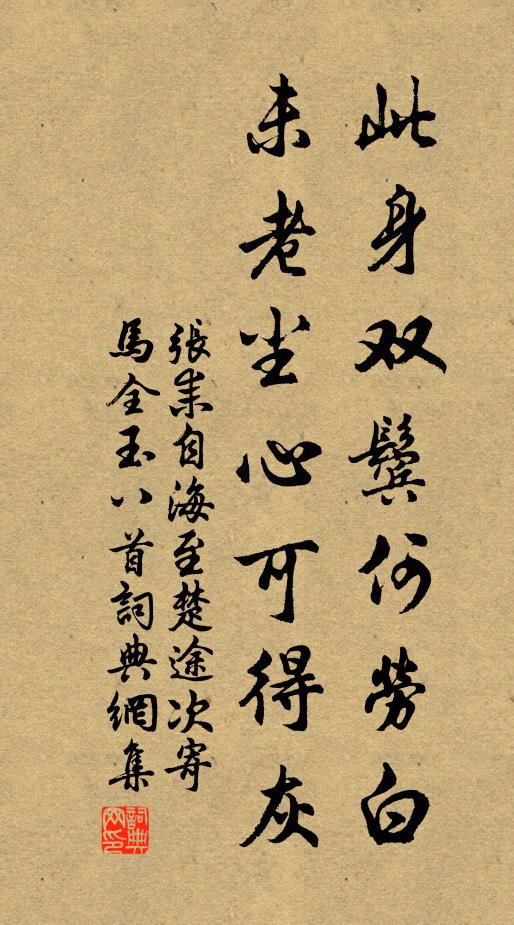 此身双鬓何勞白
未老尘心可得灰
張耒自海至楚途次寄
馬全玉八首詞典網集
詞典网印